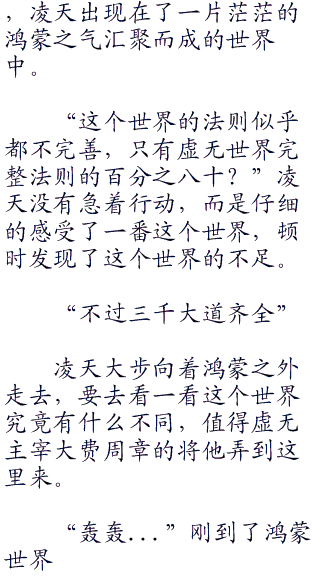 ，凌天出现在了一片茫茫的
鸿蒙之气汇聚而成的世界
中。
“这个世界的法则似乎
都不完善，只有虚无世界完
整法则的百分之八十？”凌
天没有急着行动，而是仔细
的感受了一番这个世界，顿
时发现了这个世界的不足。
“不过三千大道齐全”
凌天大步向着鸿蒙之外
走去，要去看一看这个世界
究竟有什么不同，值得虚无
主宰大费周章的将他弄到这
里来。
“轰轰...”刚到了鸿蒙
世界